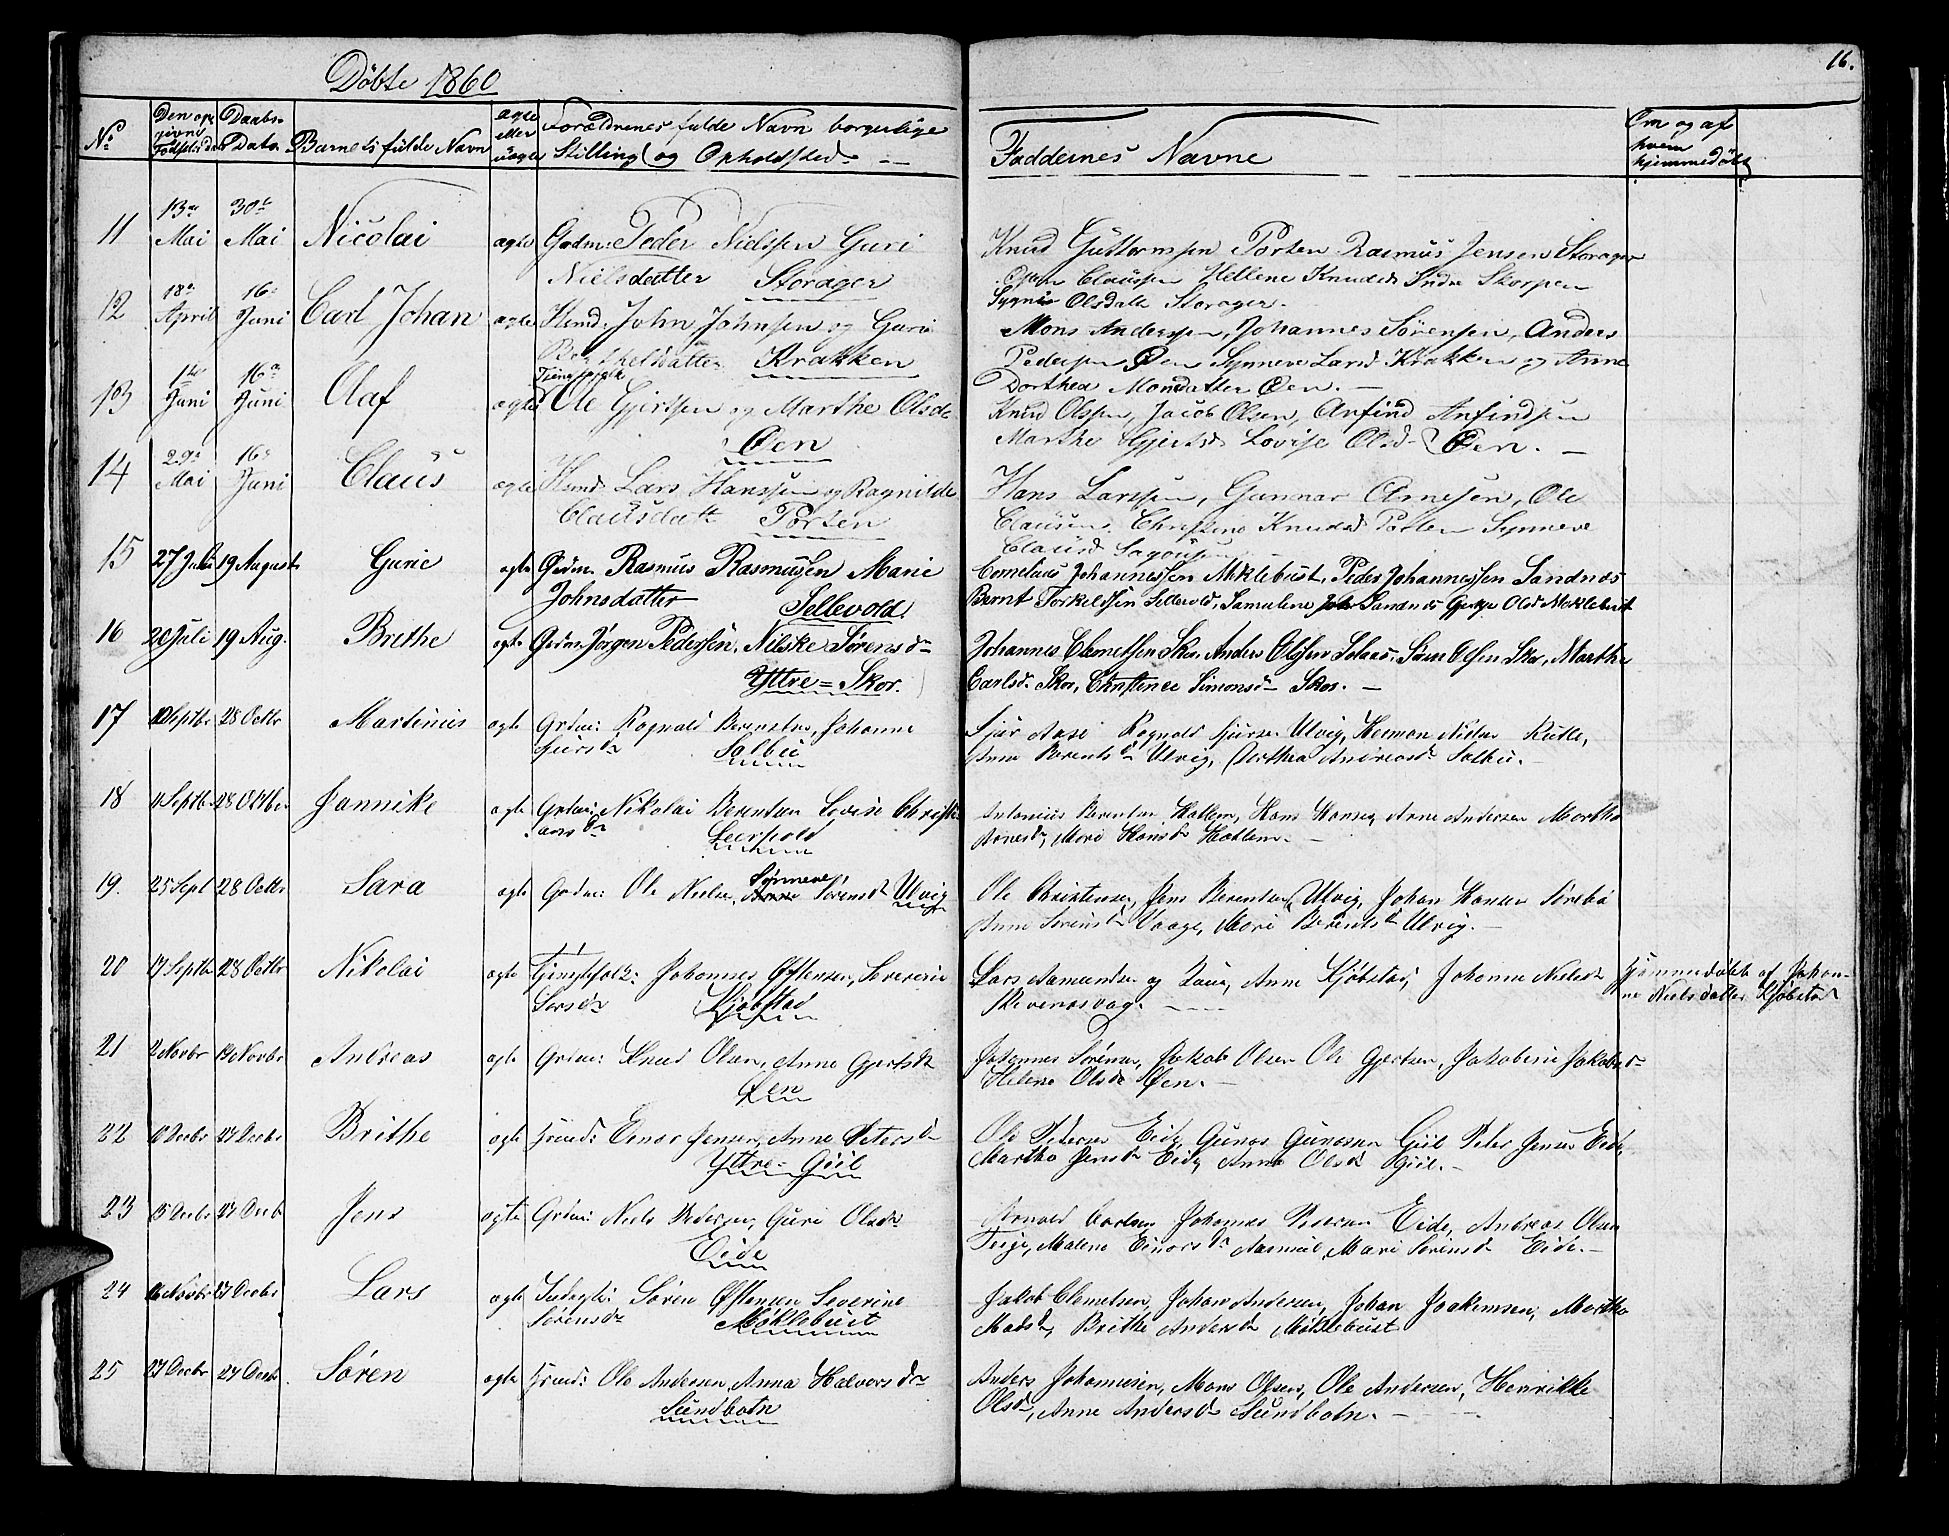 Døbte 1860
16.
No
Den op givne Fødselsdat
Daabs Dato
Barnets fulde Navn
ægte eller uægte
Forældrenes fulde Navn borgerlige
Stilling og Opholdsted
Faddernes Navne
Om og af hvem hjemmedøbt
11 13de Mai 30te Mai Nicolai ægte Gdm: Peder Nielssen Guri
Nielsdatter Storager
Knud Guttormsen Porten Rasmus Jensen Storager
Claussen Hellene Knudsd Indre Skorpen
Olsdatt Storager.
12 18de April 16de Juni Carl Johan ægte Husmd: John Johnsen og Guri
datter Krakken
Mons Anderssen, Johannes Sørensen, Anders
Pedersen Øen Synneve Larsd Krakken og Anne
Dorthea Monsdatter Øen.
13 1ste Juni 16de Juni Olaf ægte Tjenestefolk Ole Gjertsen og Marthe Olsd
Øen
Knud Olssen, Jacob Olsen, Anfind Anfindsen
Marthe Gjertsd Lovise Olsd Øen.
14 29de Mai 16de Juni Claus ægte Husmd: Lars Hanssen og Ragnilde
Clausdatt Porten
Hans Larssen, Gunnar Arnesen, Ole
Clausen, Christine Knudsd Porten Synneve
Clausd
15 27 Juli 19 August Gurie ægte Gdm. Rasmus Rasmussen Marie
Johnsdatter Sellevold.
Cornelius Johannessen Meklebust, Peder Johannessen Sandnæs
Bernt Torkeldsen Sellevold, Samuline Johs Sandnæs Olsd Meklebust
16 20 Juli 19 Aug. Brethe ægte Gdm. Jørgen Pederssen, Nilske Sørensd
Yttre=Skor.
Johannes Clemetsen Skor, Anders Olssen Solaas, Søren Olsen Skor, Marthe
Carlsd. Skor, Christence Simonsd Skor.
17 Septbr 28 Octbr Martinus ægte Grdm: Ragnald Berentsen, Johanne
Sjursd Solbu
Sjur Aase Ragnald Sjursen Ulvig, Herman Nielsen Rutle,
Anne Berentsd Ulvig, Dorthea Andreasd Solbu.
18 11 Septbr 28 Octbr Jannike ægte Grdm: Nikolai Berentsen Lovise Christi
ansd Leerpold
Antonius Berentsen Hatlem, Hans Hansen, Anne Andersen Martha
Arnesd, Mari Hansd Hatlem.
19. 25 Sept 28 Octbr Sara ægte Grdm: Ole Nielsen, Synneve Sørensd Ulvig
Ole Christensen, Jens Berentsen Ulvig, Johan Hansen Sørebø
Anne Sørensd Vaage, Mari Berentsd Ulvig.
20 17 Septbr 28 Octbr Nikolai ægte Tjenstefolk: Johannes Østensen, Severine
Larsd Kjøbstad
Lars Aamundsen og Anne Kjøbstad, Johanne Nielsd
Skivenesvaag.
Hjemmedøbt af Johan-
ne Nielsdatter Kjøbstad
21 2 Novbr Novbr Andreas ægte Grdm: Knud Olsen, Anne Gjertsd
Øen
Johannes Sørensen, Jakob Olsen Ole Gjertsen, Jakobine Jakobsd
Helene Olsd Øen.
22 Decbr 27 Decbr Brithe ægte Husmd: Einar Jensen, Anne Petersd
Yttre=Guil
Ole Pedersen Eide, Gunar Gunarsen Guil Peter Jensen Eide,
Martha Jensd Eide, Anne Olsd Guil.
23 15 Decbr 27 Decb Jens ægte Grdm: Niels Pedersen, Guri Olsd
Eide
Carlsen Johannes Pedersen Eide, Andreas Olsen
Teige, Malene Einarsd Mari Sørensd Eide.
24 16 Novbr 27 Decbr Lars ægte Inderst: Søren Østensen Severine
Sørensd Møklebust
Jakob Clemetsen, Johan Andersen, Johan Joakimsen, Martha
Madsd, Brithe Andersd Møklebust
25 27 Decbr 27 Decbr Søren ægte Husmd: Ole Andersen, Anna Halvorsd
Sundbotn
Anders Johannesen, Mons Olsen, Ole Andersen, Henrikke
Olsd, Anne Andersd Sundbotn.